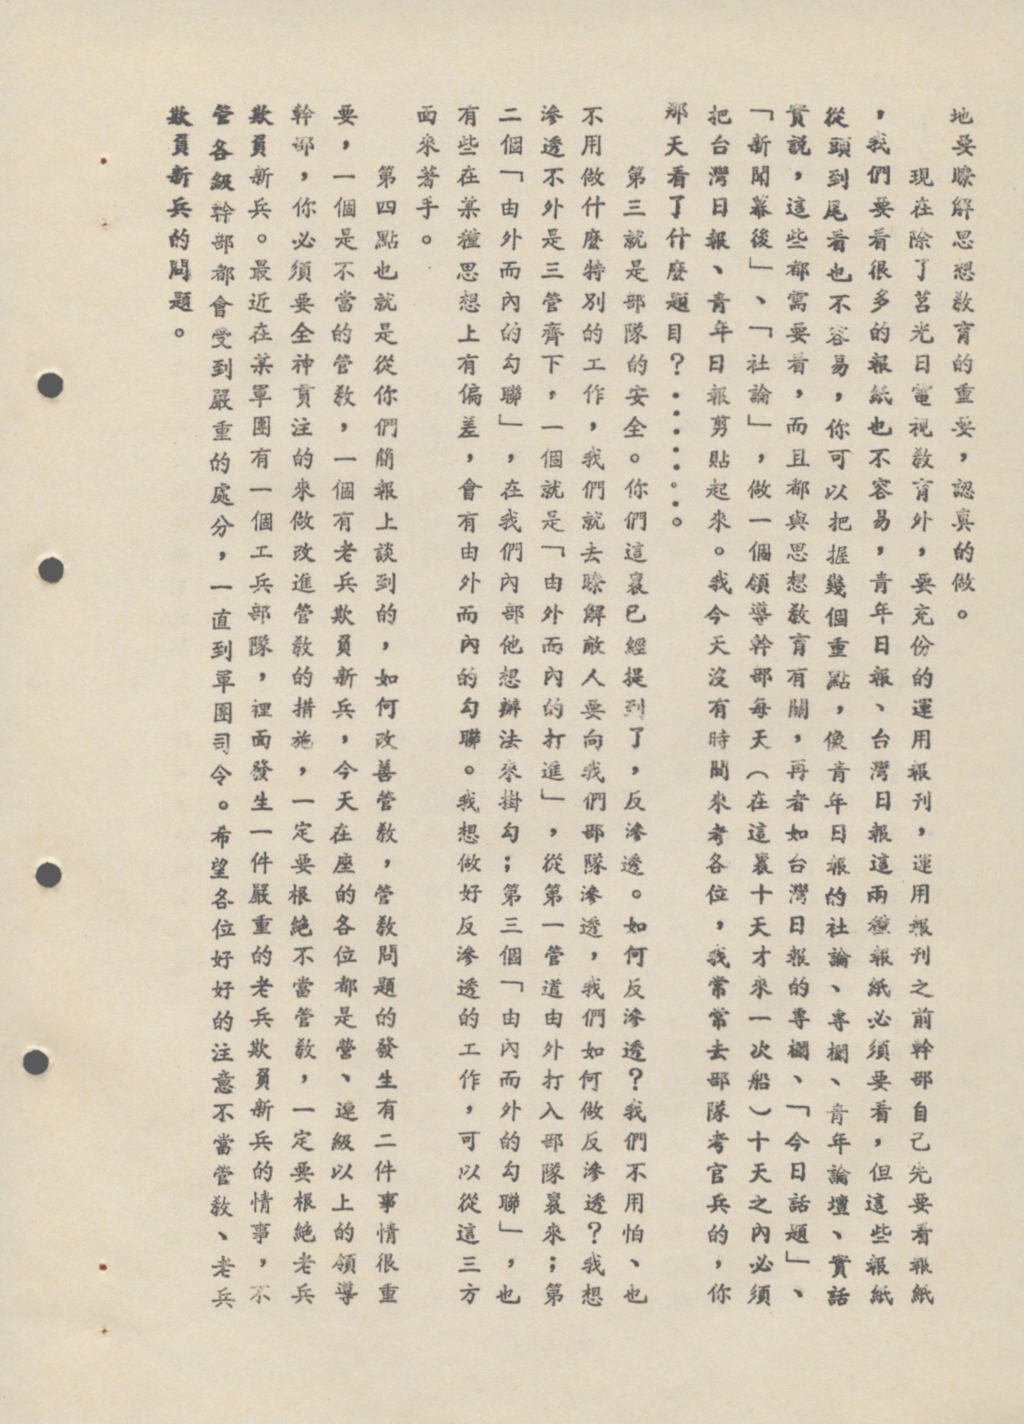 地要瞭解思想教育的重要，認真的做。
現在除了莒光日電視教育外，要充份的運用報刊，運用報刊之前幹部自己先要看報紙
，我們要看很多的報紙也不容易，青年日報、台灣日報這兩種報紙必須要看，但這些報紙
從頭到尾看也不容易，你可以把握幾個重點，像青年日報的社論、專欄、青年論壇、實話
實說，這些都需要看，而且都與思想教育有關，再者如台灣日報的專欄、「今日話題」、
「新聞幕後」、「社論」，做一個領導幹部每天（在這裏十天才來一次船）十天之內必須
把台灣日報、青年日報剪貼起來。我今天沒有時間來考各位，我常常去部隊考官兵的，你
那天看了什麼題目？‧‧‧‧‧。
第三就是部隊的安全。你們這裏已經提到了，反滲透。如何反滲透？我們不用怕、也
不用做什麼特別的工作，我們就去瞭解敵人要向我們部隊滲透，我們如何做反滲透？我想
滲透不外是三管齊下，一個就是「由外而內的打進」，從第一管道由外打入部隊裏來；第
二個「由外而內的勾聯」，在我們內部他想辦法來掛勾；第三個「由內而外的勾聯」，也
有些在某種思想上有偏差，會有由外而內的勾聯。我想做好反滲透的工作，可以從這三方
面來著手。
第四點也就是從你們簡報上談到的，如何改善管教，管教問題的發生有二件事情很重
要，一個是不當的管教，一個有老兵欺負新兵，今天在座的各位都是營、連級以上的領導
幹部，你必須要全神貫注的來做改進管教的措施，一定要根絕不當管教，一定要根絕老兵
欺負新兵。最近在某軍團有一個工兵部隊，裡面發生一件嚴重的老兵欺負新兵的情事，不
管各級幹部都會受到嚴重的處分，一直到軍團司令。希望各位好好的注意不當管教、老兵
欺負新兵的問題。